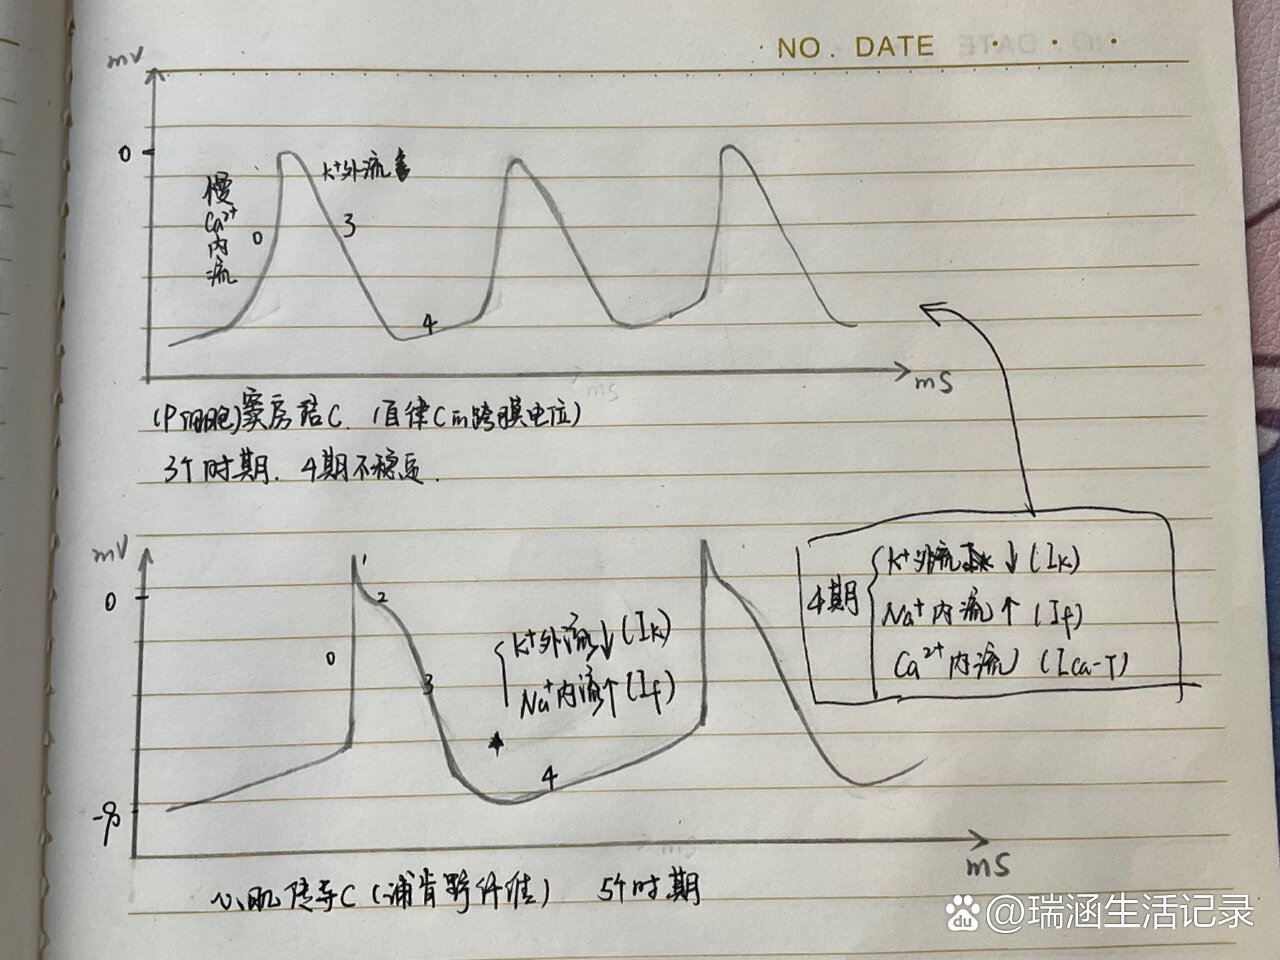 NO. DATE
mV
0
慢
Ca²⁺
内
流
0
K⁺外流
3
4
mS
(P细胞)窦房结C. (自律C的跨膜电位)
3个时期. 4期不稳定.
mV
0
1
2
0
3
K⁺外流↓(Ik)
Na⁺内流↑(If)
4
-90
mS
4期
K⁺外流 ↓(Ik)
Na⁺内流↑(If)
Ca²⁺内流 (Ica-T)
心肌传导C(浦肯野纤维) 5个时期
Bai du @瑞涵生活记录